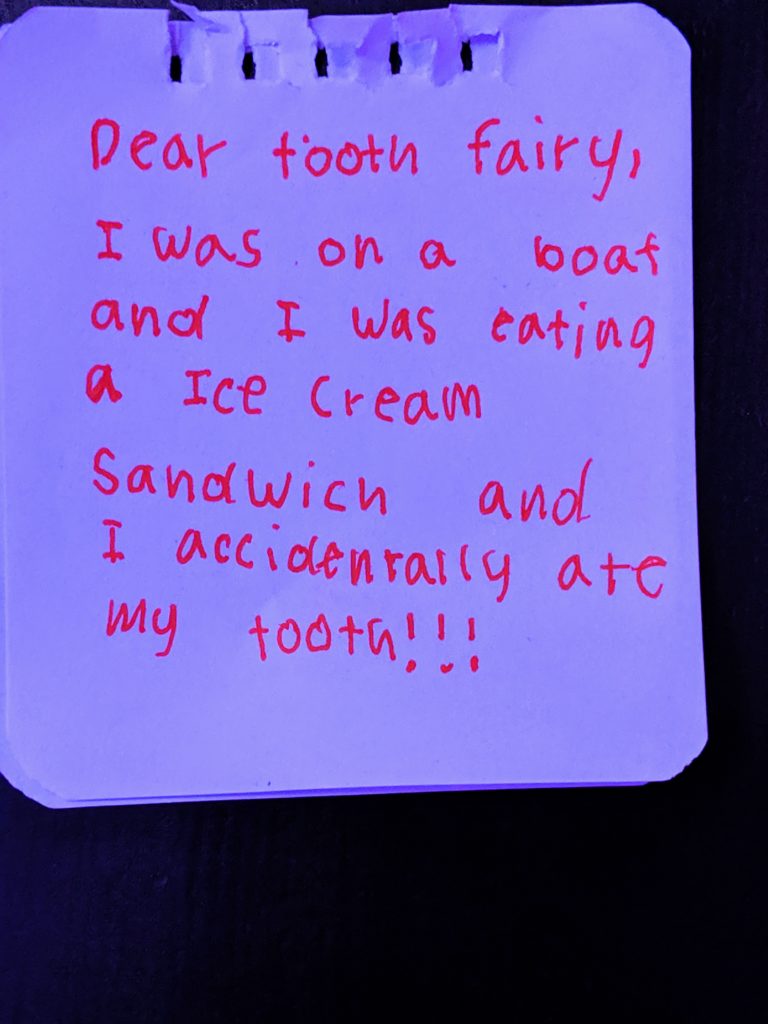 Dear tooth fairy,
I was on a boat
and I was eating
a Ice Cream
Sandwich and
I accidentally ate
my tooth!!!